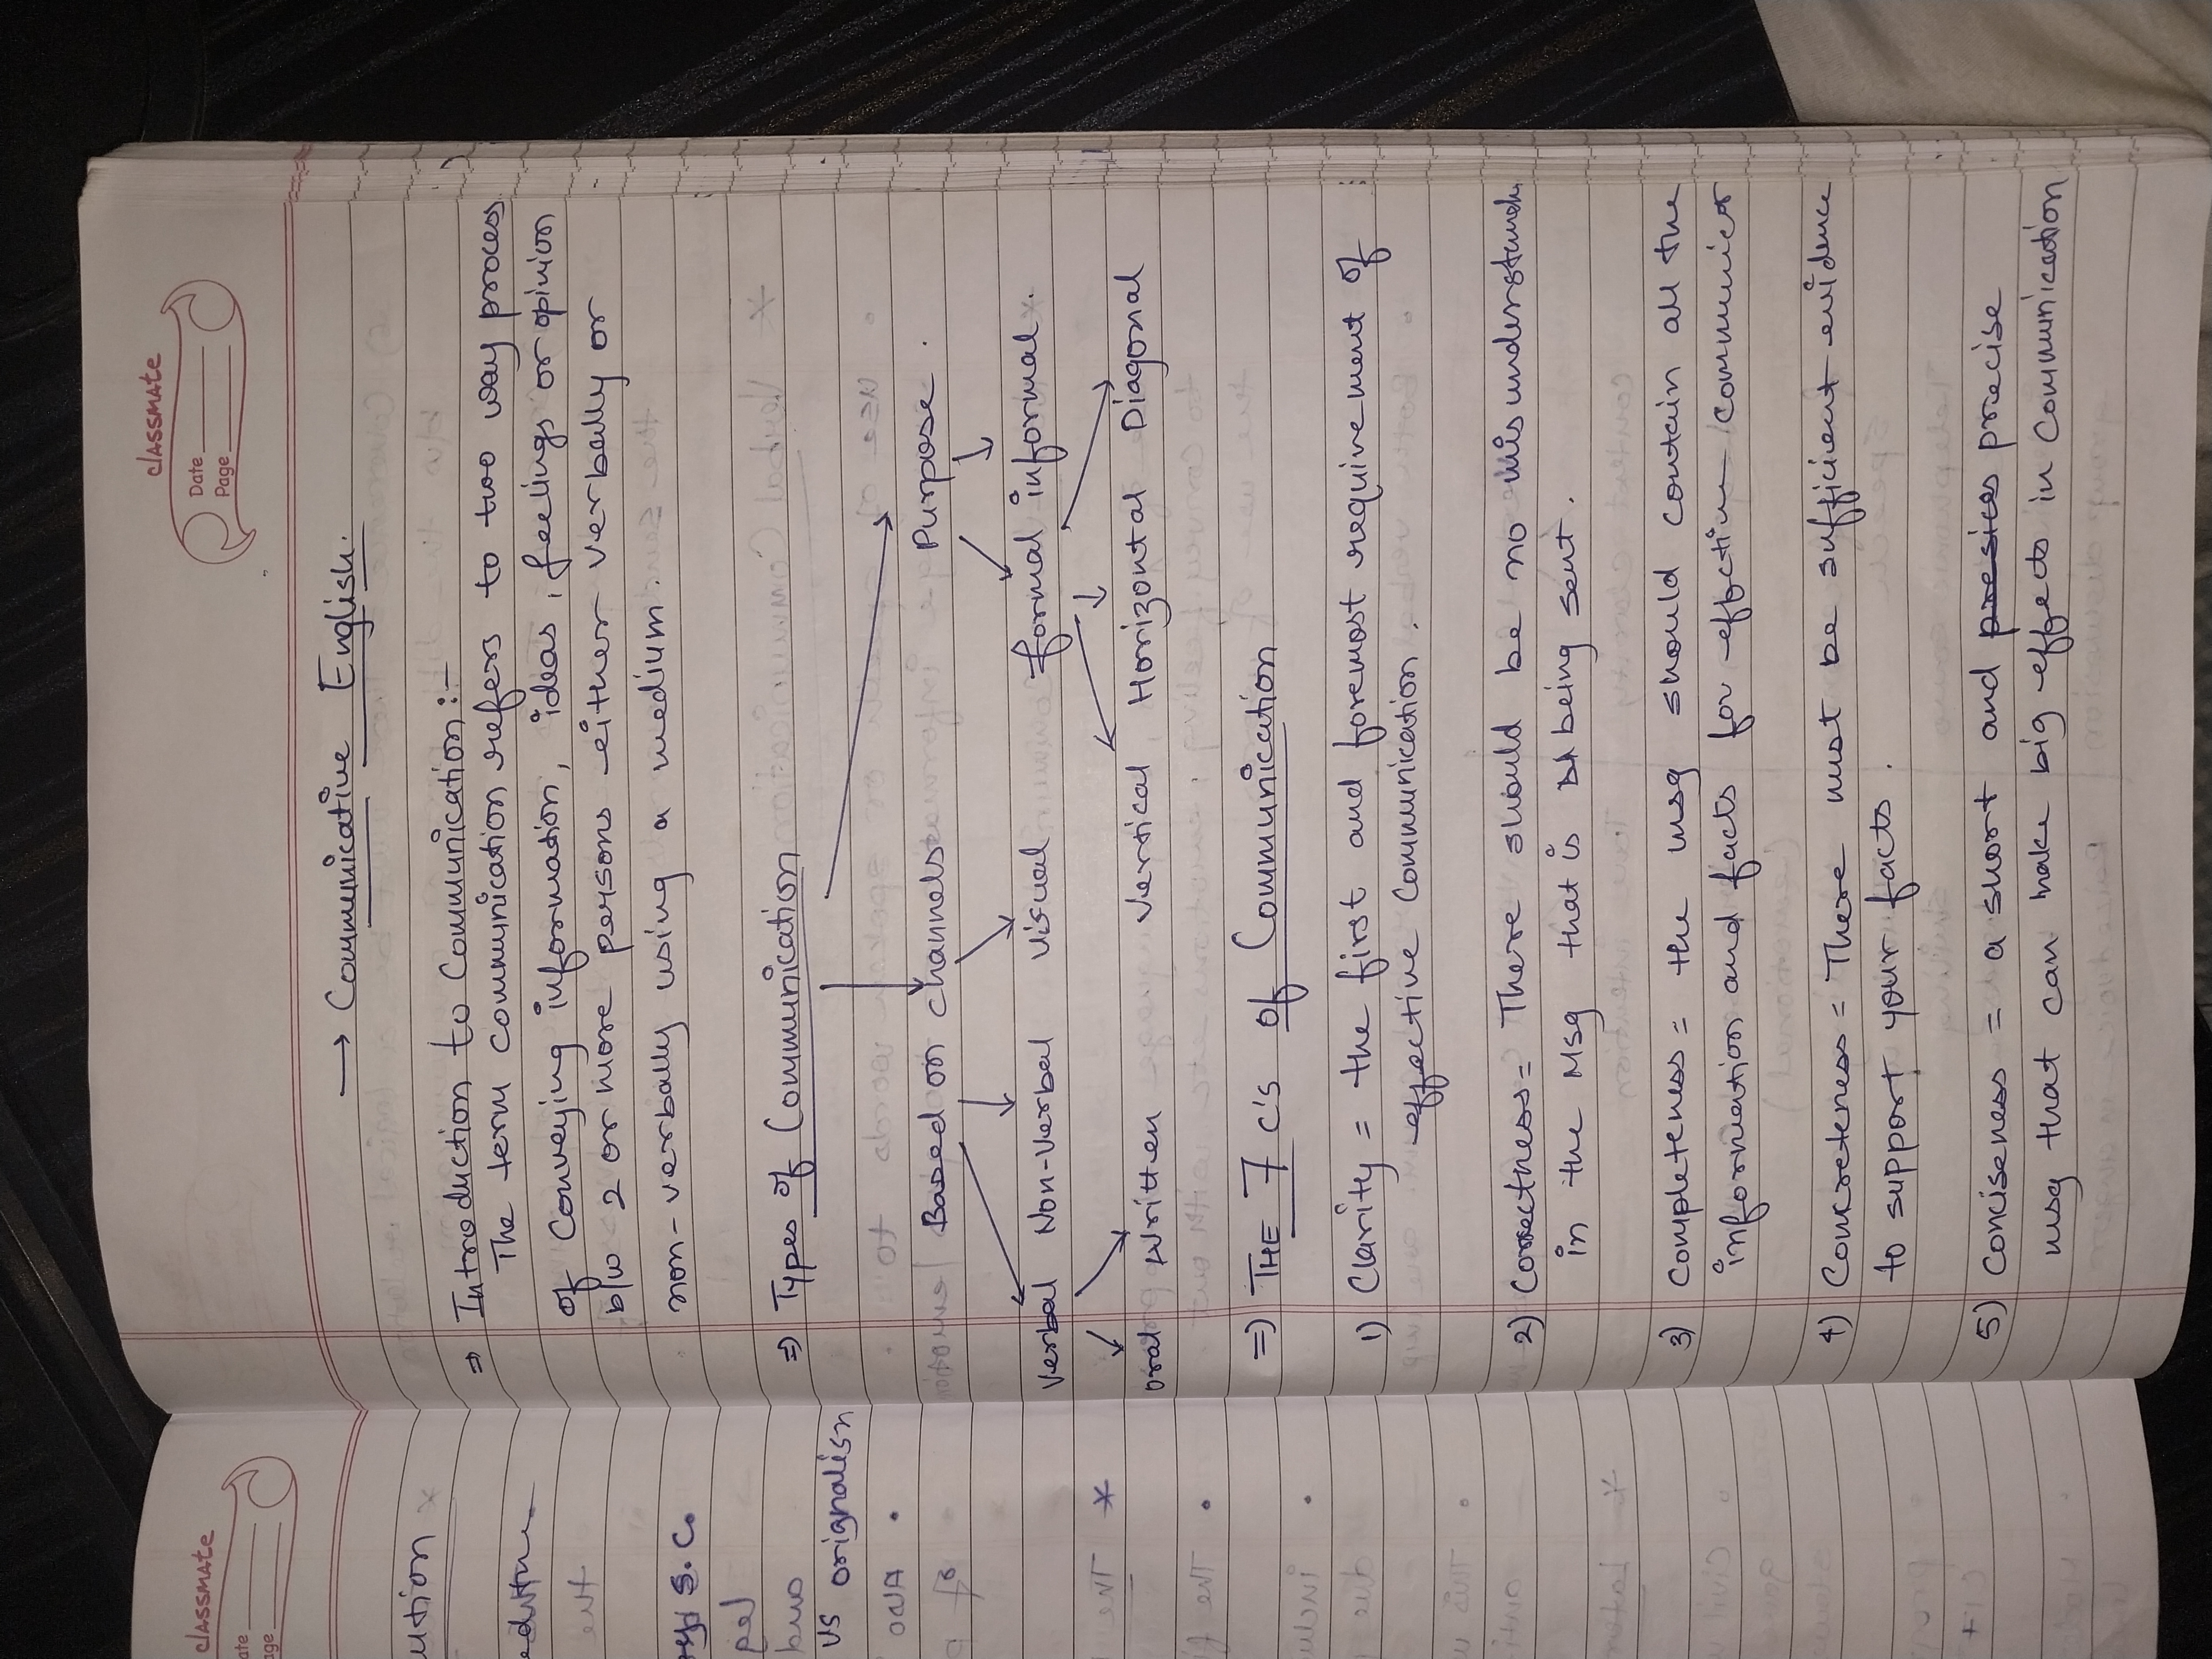 classmate
Date
Page
→ Communicative English.
⇒ Introduction to Communication :-
The term communication refers to two way process
of Conveying information, ideas, feelings or opinion
b/w 2 or more persons either verbally or
non-verbally using a medium.
⇒ Types of Communication
Based on channels Purpose.
Verbal Non-Verbal Visual formal informal.
oral written Vertical Horizontal Diagonal
⇒ THE 7 C's of Communication
1) Clarity = the first and foremost requirement of
effective Communication.
2) Correctness = There should be no misunderstandi
in the Msg that is being sent.
3) Completeness = the msg should contain all the
information and facts for effective communicat
4) Concreteness = There must be sufficient evidence
to support your facts.
5) Conciseness = a short and presices precise
msg that can make big effects in Communication
classmate
ate
age
ution
S.C.
us orignalism